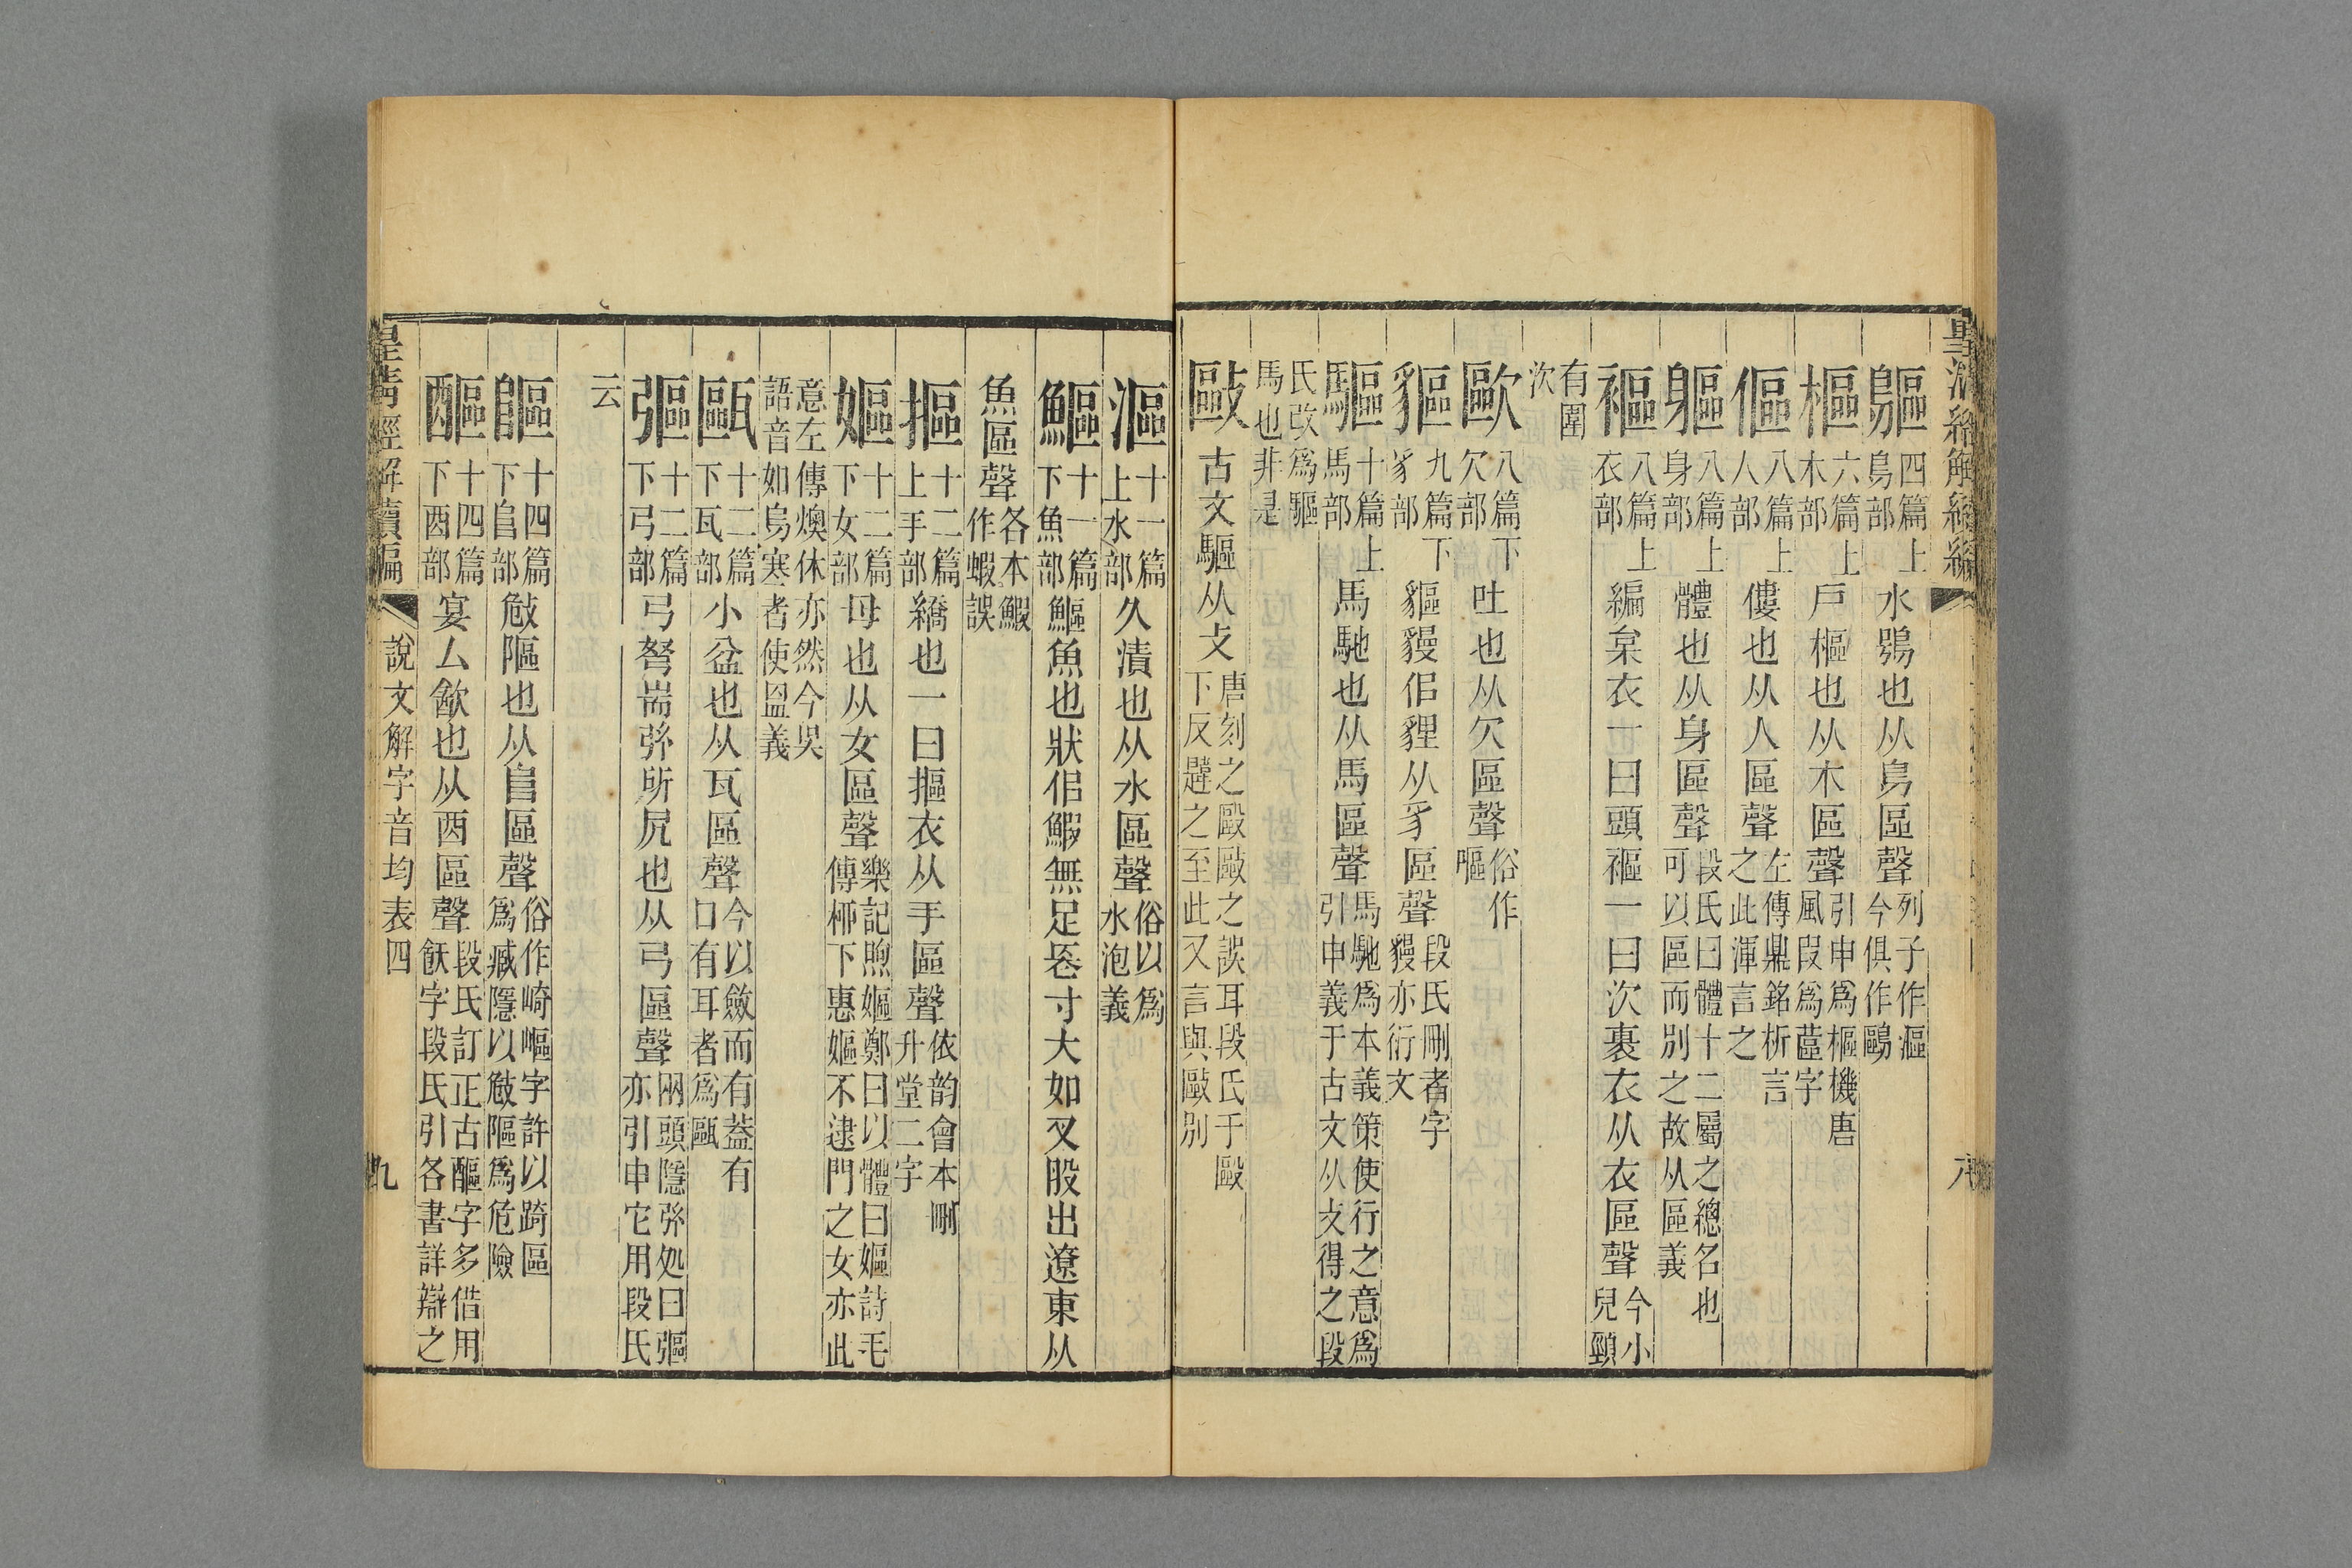 鷗四篇上鳥部水鴞也从鳥區聲列子作漚今俱作鷗
樞六篇上木部戶樞也从木區聲引申爲樞機唐風叚爲蓲字
傴八篇上人部僂也从人區聲左傳鼎銘析言之此渾言之
軀八篇上身部體也从身區聲段氏曰體十二屬之總名也可以區而別之故从區義
褔八篇上衣部編枲衣一曰頭褔一曰次裹衣从衣區聲今小兒頸
有圍次
歐八篇下欠部吐也从欠區聲俗作嘔
貙九篇下豸部貙貗佀貍从豸區聲段氏刪者字貗亦衍文
驅十篇上馬部馬馳也从馬區聲馬馳爲本義策使行之意爲引申義于古文从攴得之段
氏改爲驅馬也非是
敺古文驅从攴唐刻之毆敺之誤耳段氏于毆下反躄之至此又言與敺別
漚十一篇上水部久漬也从水區聲俗以爲水泡義
鰸十一篇下魚部鰸魚也狀佀鰕無足長寸大如叉股出遼東从
魚區聲各本鰕作蝦誤
摳十二篇上手部繑也一曰摳衣从手區聲依韵會本刪升堂二字
嫗十二篇下女部母也从女區聲樂記煦嫗鄭曰以體曰嫗詩毛傳桺下惠嫗不逮門之女亦此
意左傳燠休亦然今吳語音如烏寒者使昷義
甌十二篇下瓦部小盆也从瓦區聲今以斂而有葢有口有耳者爲甌
彄十二篇下弓部弓弩耑弶所凥也从弓區聲网頭隱弶処曰彄亦引申它用段氏
云
䧢十四篇下𨸏部敧䧢也从𨸏區聲俗作崎嶇字許以踦區爲臧隱以敧䧢爲危險
醧十四篇下酉部宴厶飮也从酉區聲段氏訂正古醧字多借用飫字段氏引各書詳辯之
皇淸經解續編
說文解字音均表四
九